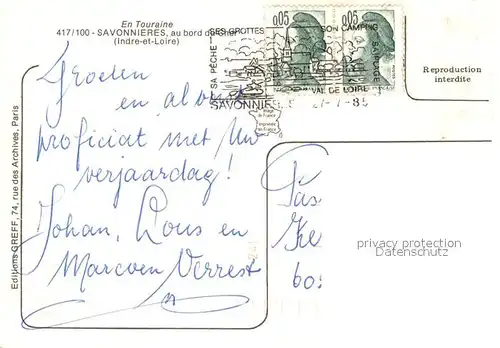 En Touraine
417/100 - SAVONNIERES, au bord du Cher
(Indre-et-Loire)
0,05 0,05
SES GROTTES SON CAMPING
SA PÊCHE
SA PLAGE
VAL DE LOIRE
SAVONNIE 27-7-85
Reproduction
interdite
Image de France
Imprimée en France
Editions GREFF, 74, rue des Archives, Paris
Groeten
en al vast
proficiat met Uw
verjaardag!
Johan, Lous en
Marcoen Verrest
privacy protection
Datenschutz